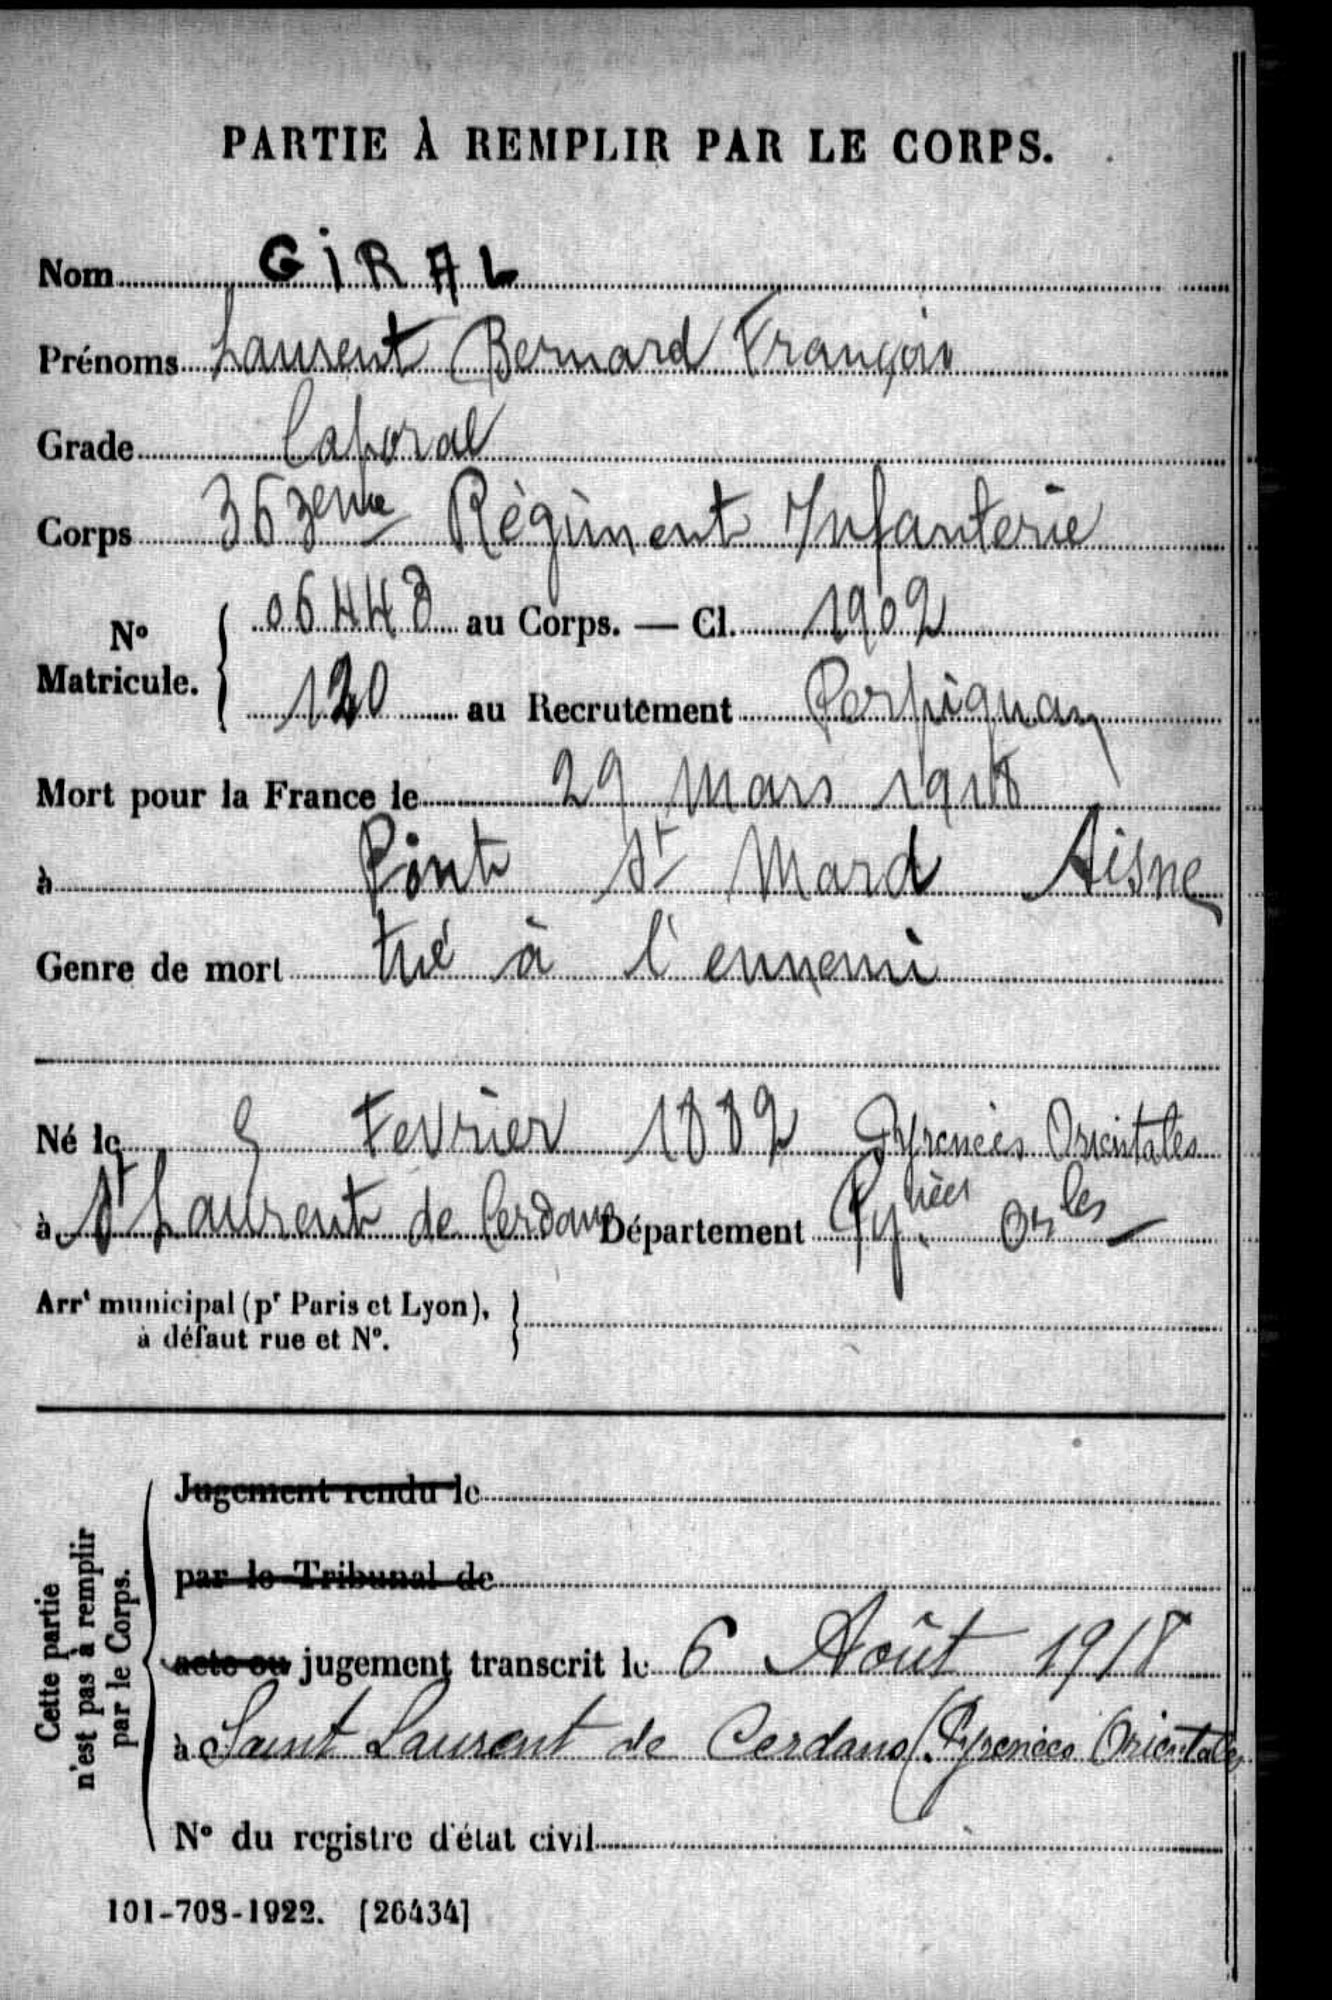 PARTIE À REMPLIR PAR LE CORPS.
Nom GIRAL
Prénoms Laurent Bernard François
Grade Caporal
Corps 363eme Régiment Infanterie
N° Matricule. { 06448 au Corps. — Cl. 1902
120 au Recrutement Perpignan
Mort pour la France le 29 Mars 1918
à Pont St Mard Aisne
Genre de mort tué à l'ennemi
Né le 5 Fevrier 1882 Pyrenées Orientales
à St Laurent de Cerdans Département Pynées Orles
Arrt municipal (pr Paris et Lyon), }
à défaut rue et N°.
Cette partie
n'est pas à remplir
par le Corps.
Jugement rendu le
par le Tribunal de
acte ou jugement transcrit le 6 Août 1918
à Saint Laurent de Cerdans (Pyrenées Orientales
N° du registre d'état civil
101-708-1922. [26434]